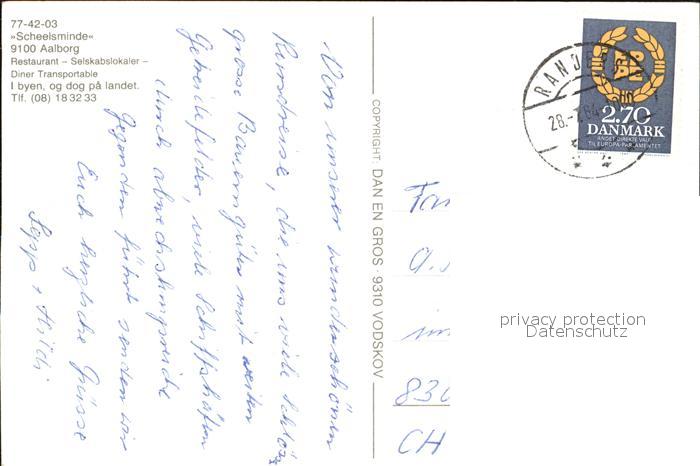 77-42-03
»Scheelsminde«
9100 Aalborg
Restaurant – Selskabslokaler –
Diner Transportable
I byen, og dog på landet.
Tlf. (08) 18 32 33
Von unserer wunderschönen
Rundreise, die uns viele Schlös
grosse Bauerngüter mit weiten
Getreidefelder, viele Schiffshäfen
durch abwechslungsreiche
Gegenden führt senden wir
Euch herzliche Grüsse
Sepp + Hildi
COPYRIGHT: DAN EN GROS · 9310 VODSKOV
RANDERS
2.70
DANMARK
ANDET DIREKTE VALG
TIL EUROPA-PARLAMENTET
Fam
a.
im
830
CH
privacy protection
Datenschutz